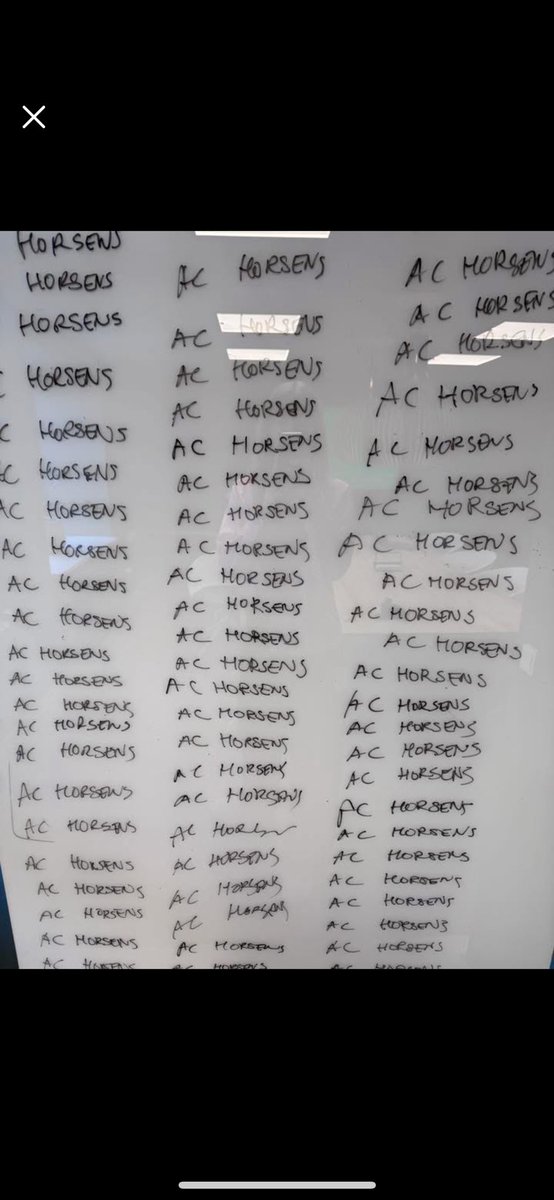 HORSENS
HORSENS
HORSENS
C HORSENS
C HORSENS
C HORSENS
AC HORSENS
AC HORSENS
AC HORSENS
AC HORSENS
AC HORSENS
AC HORSENS
AC HORSENS
AC HORSENS
AC HORSENS
AC HORSENS
AC HORSENS
AC HORSENS
AC HORSENS
AC HORSENS
AC HORSENS
AC
AC HORSENS
AC HORSENS
AC HORSENS
AC HORSENS
AC HORSENS
AC HORSENS
AC HORSENS
AC HORSENS
AC HORSENS
AC HORSENS
AC HORSENS
AC HORSENS
AC HORSENS
AC HORSENS
AC HORSENS
AC HORSENS
AC HORSENS
AC
AC HORSENS
AC HORSENS
AC HORSENS
AC HORSENS
AC HORSENS
AC HORSENS
AC HORSENS
AC HORSENS
AC HORSENS
AC HORSENS
AC HORSENS
AC HORSENS
AC HORSENS
AC HORSENS
AC HORSENS
AC HORSENS
AC HORSENS
AC HORSENS
AC HORSENS
AC HORSENS
AC HORSENS
AC HORSENS
AC HORSENS
AC HORSENS
AC HORSENS
AC HORSENS
AC HORSENS
AC HORSENS